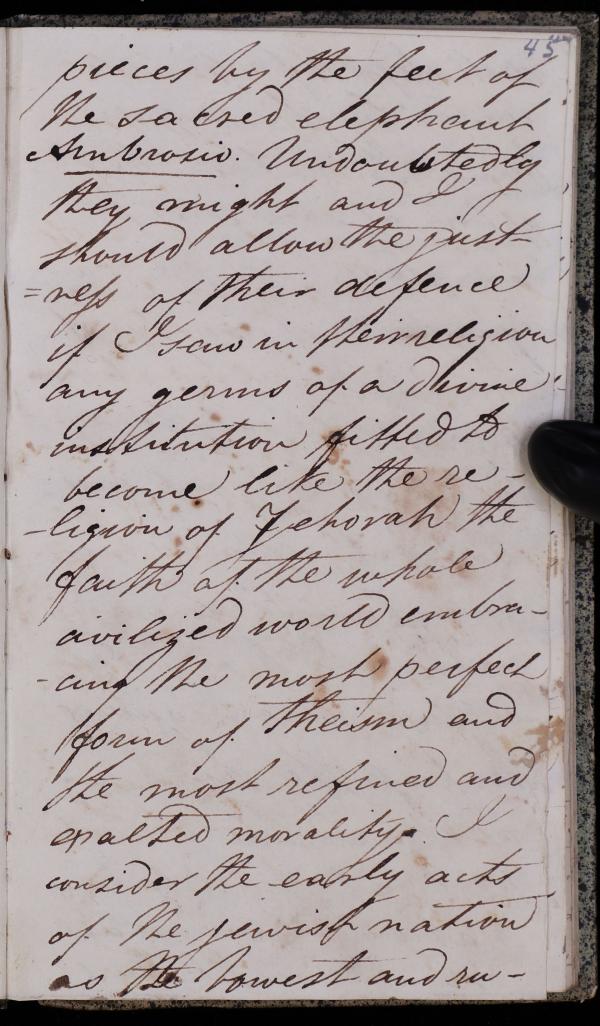 45
pieces by the feet of
the sacred elephant
Ambrosio. Undoubtedly
they might and I
should allow the just-
=ness of their defence
if I saw in their religion
any germs of a divine
institution fitted to
become like the re-
-ligion of Jehovah the
faith of the whole
civilized world embra-
-cing the most perfect
form of theism and
the most refined and
exalted morality. I
consider the early acts
of the jewish nation
as the lowest and ru-